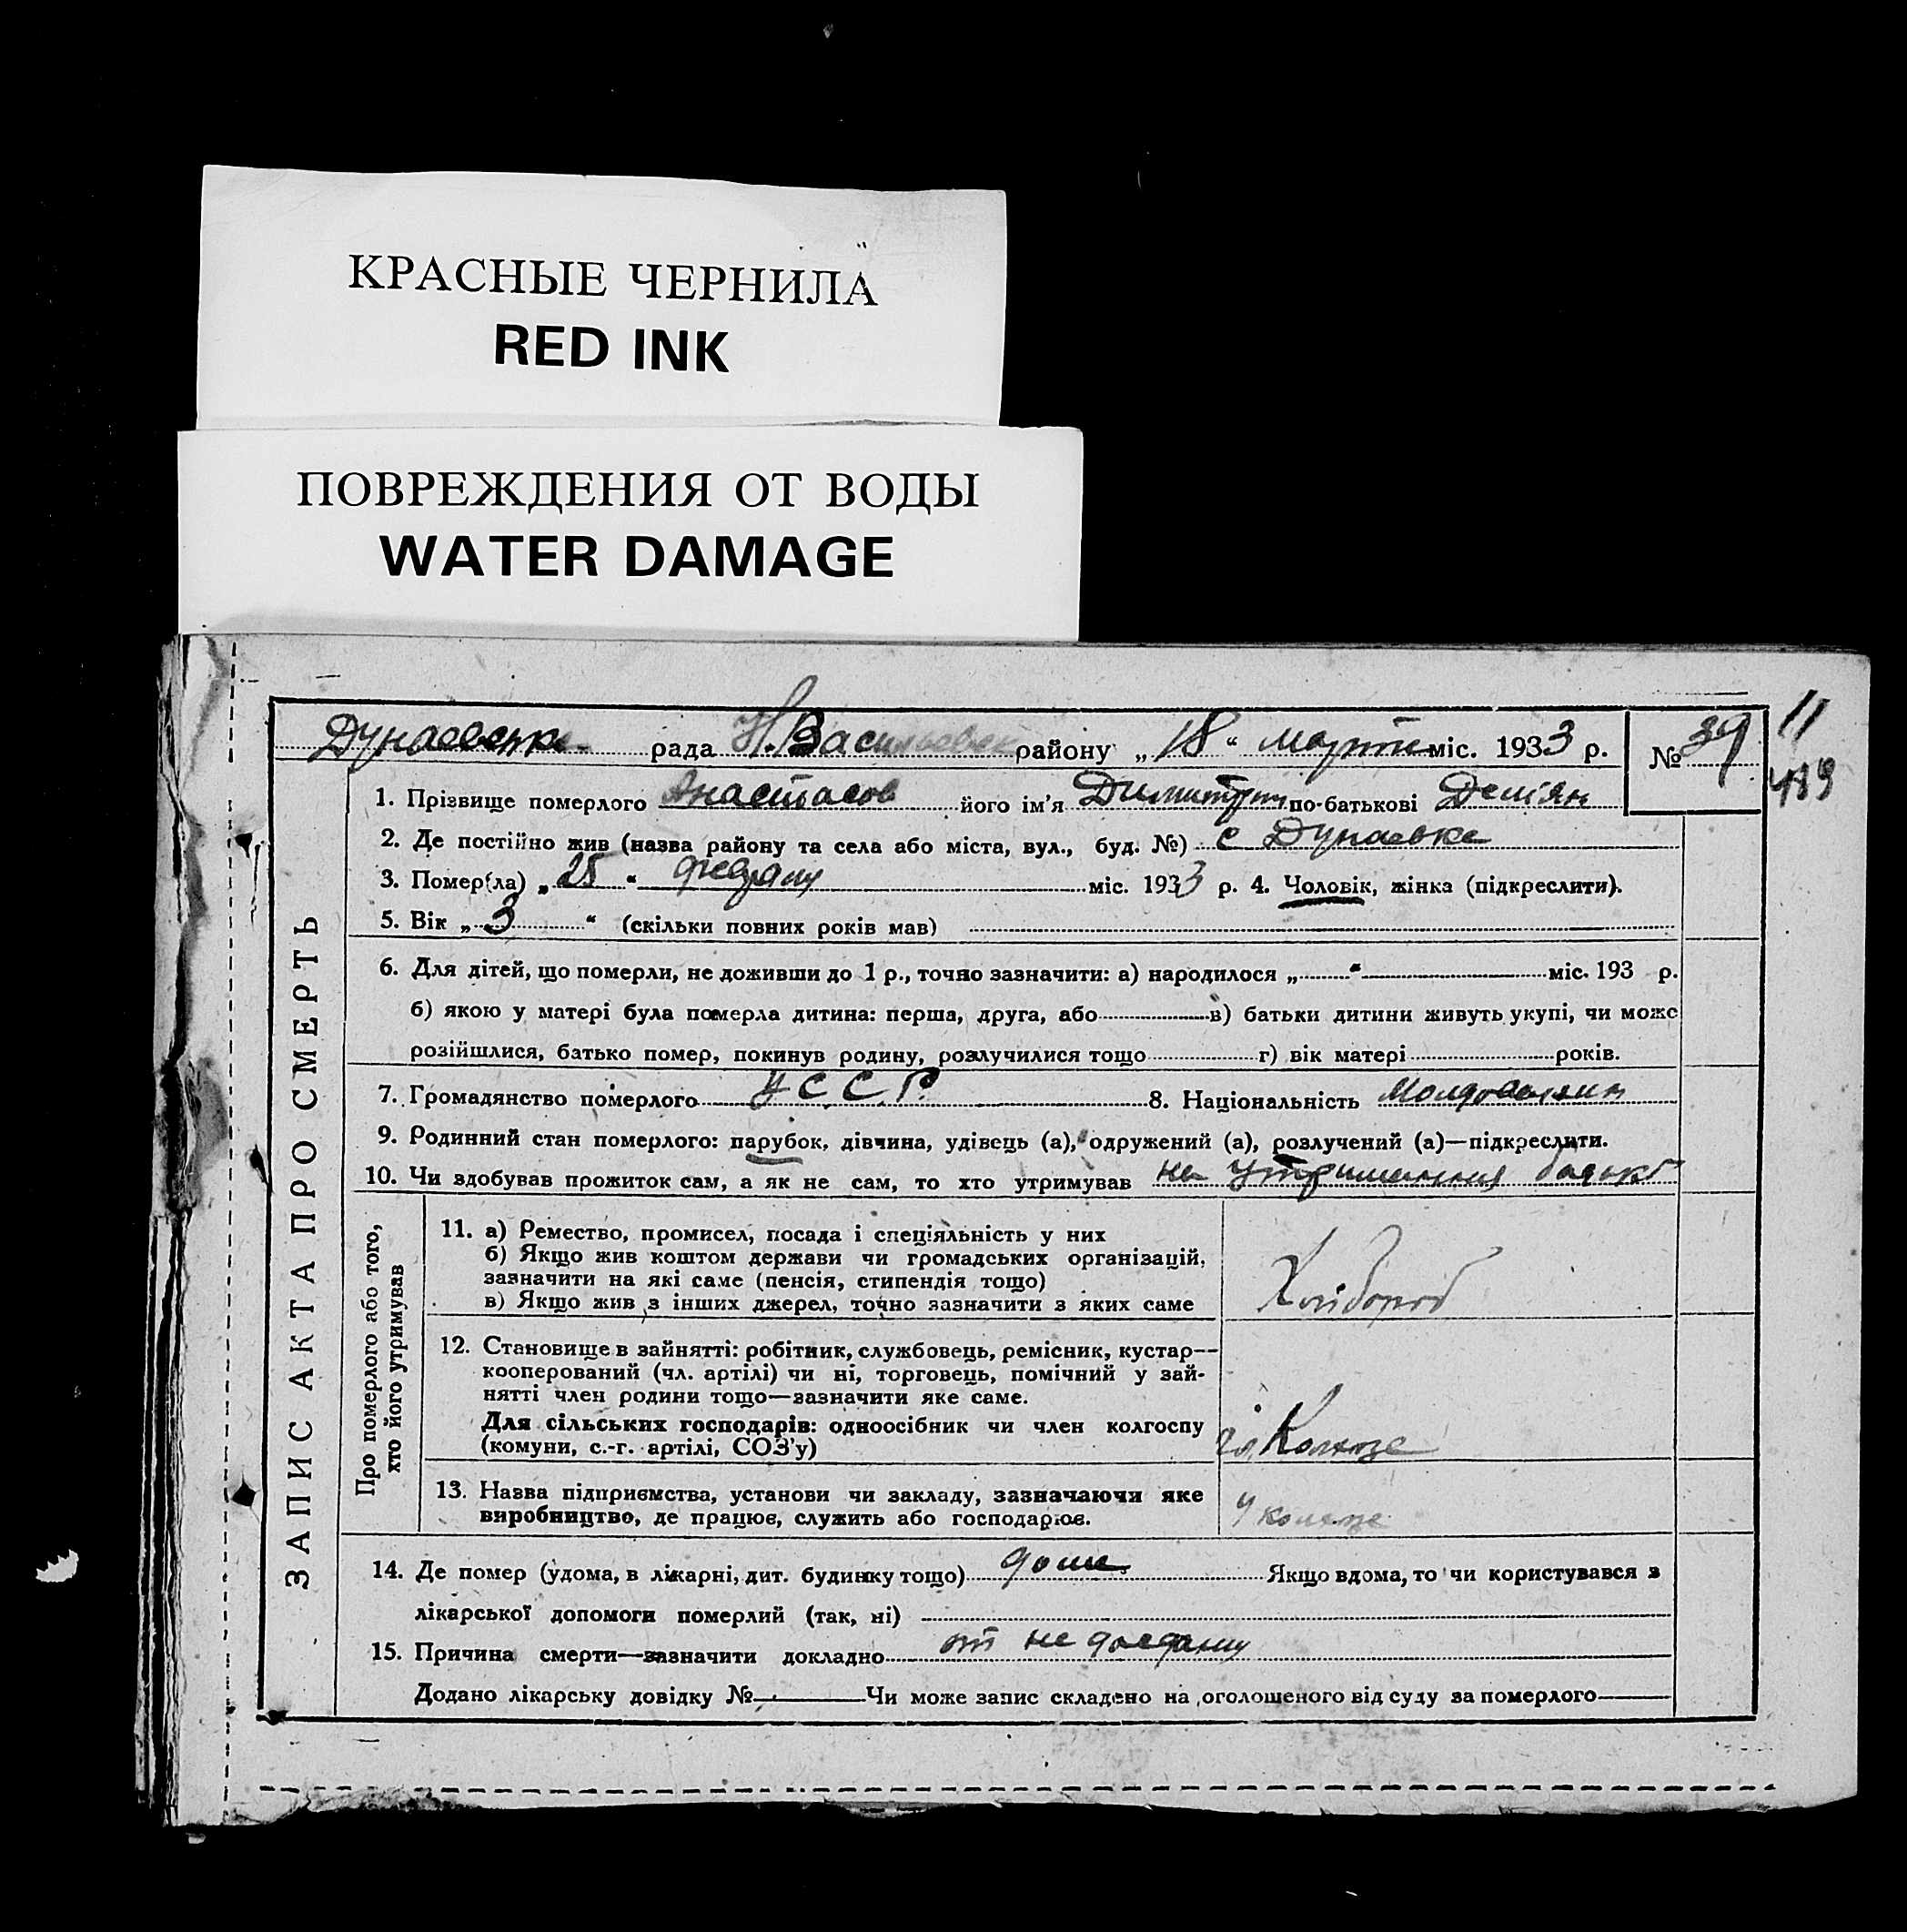 КРАСНЫЕ ЧЕРНИЛА
RED INK
ПОВРЕЖДЕНИЯ ОТ ВОДЫ
WATER DAMAGE
11
489
Дунаевська рада Н. Васильевск району „18“ марта міс. 1933 р. № 39
ЗАПИС АКТА ПРО СМЕРТЬ
1. Прізвище померлого Анастасов його ім’я Димитрий по-батькові Демян
2. Де постійно жив (назва району та села або міста, вул., буд. №) с Дунаевка
3. Помер(ла) „25“ февраля міс. 1933 р. 4. Чоловік, жінка (підкреслити).
5. Вік „3“ (скільки повних років мав)
6. Для дітей, що померли, не доживши до 1 р., точно зазначити: а) народилося „ “ міс. 193 р.
б) якою у матері була померла дитина: перша, друга, або в) батьки дитини живуть укупі, чи може
розійшлися, батько помер, покинув родину, розлучилися тощо г) вік матері років.
7. Громадянство померлого У.С.С.Р. 8. Національність Молдованин
9. Родинний стан померлого: парубок, дівчина, удівець (а), одружений (а), розлучений (а)—підкреслити.
10. Чи здобував прожиток сам, а як не сам, то хто утримував на утримання батька
Про померлого або того,
хто його утримував
11. а) Ремество, промисел, посада і спеціяльність у них
б) Якщо жив коштом держави чи громадських організацій,
зазначити на які саме (пенсія, стипендія тощо)
в) Якщо жив з інших джерел, точно зазначити з яких саме
Хлібороб
12. Становище в зайнятті: робітник, службовець, ремісник, кустар—
кооперований (чл. артілі) чи ні, торговець, помічний у зай-
нятті член родини тощо—зазначити яке саме.
Для сільських господарів: одноосібник чи член колгоспу
(комуни, с.-г. артілі, СОЗ’у)
13. Назва підприємства, установи чи закладу, зазначаючи яке
виробництво, де працює, служить або господарює.
14. Де помер (удома, в лікарні, дит. будинку тощо) дома. Якщо вдома, то чи користувався з
лікарської допомоги померлий (так, ні)
15. Причина смерти—зазначити докладно от не доедания
Додано лікарську довідку № Чи може запис складено на оголошеного від суду за померлого